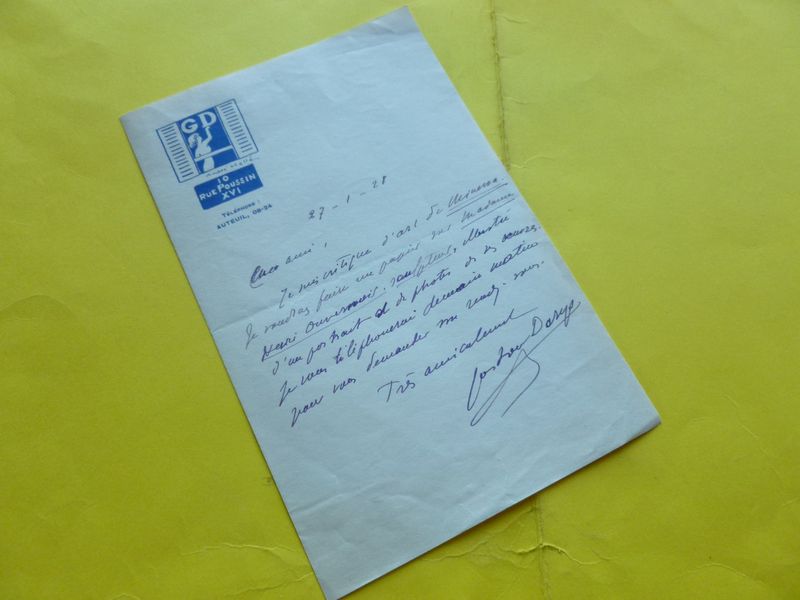 GD
10
RUE POUSSIN
XVI
TÉLÉPHONE :
AUTEUIL, 08-24
27-1-28
Cher ami,
Je suis critique d'art de Minerva.
Je voudrais faire un papier sur Madame
Henri Duvernois, sculpteur, illustré
d'un portrait et de photos de ses œuvres.
Je vous téléphonerai demain matin
pour vous demander un rendez-vous.
Très amicalement
Gaston Derys